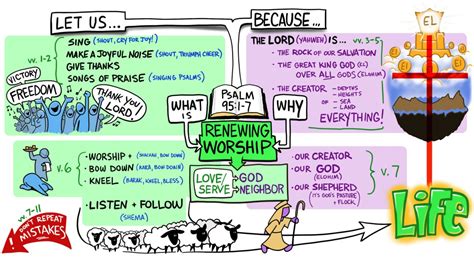 LET US...
BECAUSE...
vv. 1-2
SING (SHOUT, CRY FOR JOY!)
MAKE A JOYFUL NOISE (SHOUT, TRIUMPH, CHEER)
GIVE THANKS
SONGS OF PRAISE (SINGING PSALMS)
VICTORY
FREEDOM
THANK YOU LORD!
THE LORD (YAHWEH) IS...
vv. 3-5
• THE ROCK OF OUR SALVATION
• THE GREAT KING GOD (EL)
OVER ALL GODS (ELOHIM)
• THE CREATOR
- DEPTHS
- HEIGHTS
OF - SEA
- LAND
EVERYTHING!
EL
EL
EL
WHAT IS
PSALM 95:1-7
WHY
RENEWING WORSHIP
LOVE/
SERVE
GOD
NEIGHBOR
v. 6
• WORSHIP + (SHACHAH, BOW DOWN)
• BOW DOWN (KARA, BOW DOWN)
• KNEEL (BARAK, KNEEL, BLESS)
• LISTEN + FOLLOW
(SHEMA)
• OUR CREATOR
• OUR GOD
(ELOHIM)
• OUR SHEPHERD
(IT'S GOD'S PASTURE
+ FLOCK)
v. 7
vv. 7-11
DON'T REPEAT
MISTAKES
LIFE